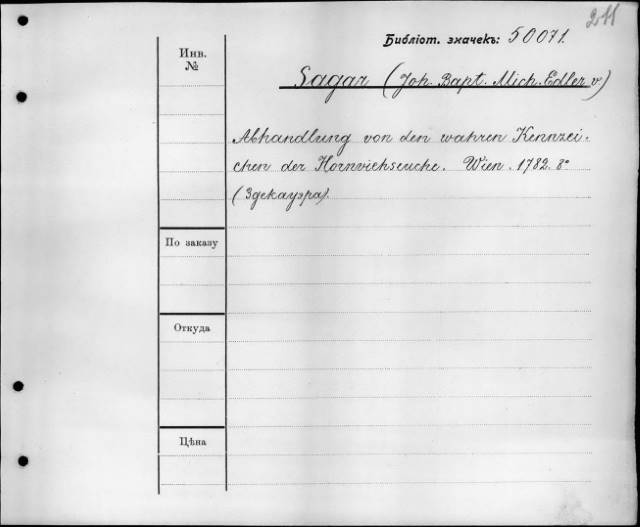 211
Библіот. значекъ: 50071.
Инв.
№
Sagar (Joh. Bapt. Mich. Edler v)
Abhandlung von den wahren Kennzei-
chen der Hornviehseuche. Wien. 1782. 8°
(Здекауэра).
По заказу
Откуда
Цѣна